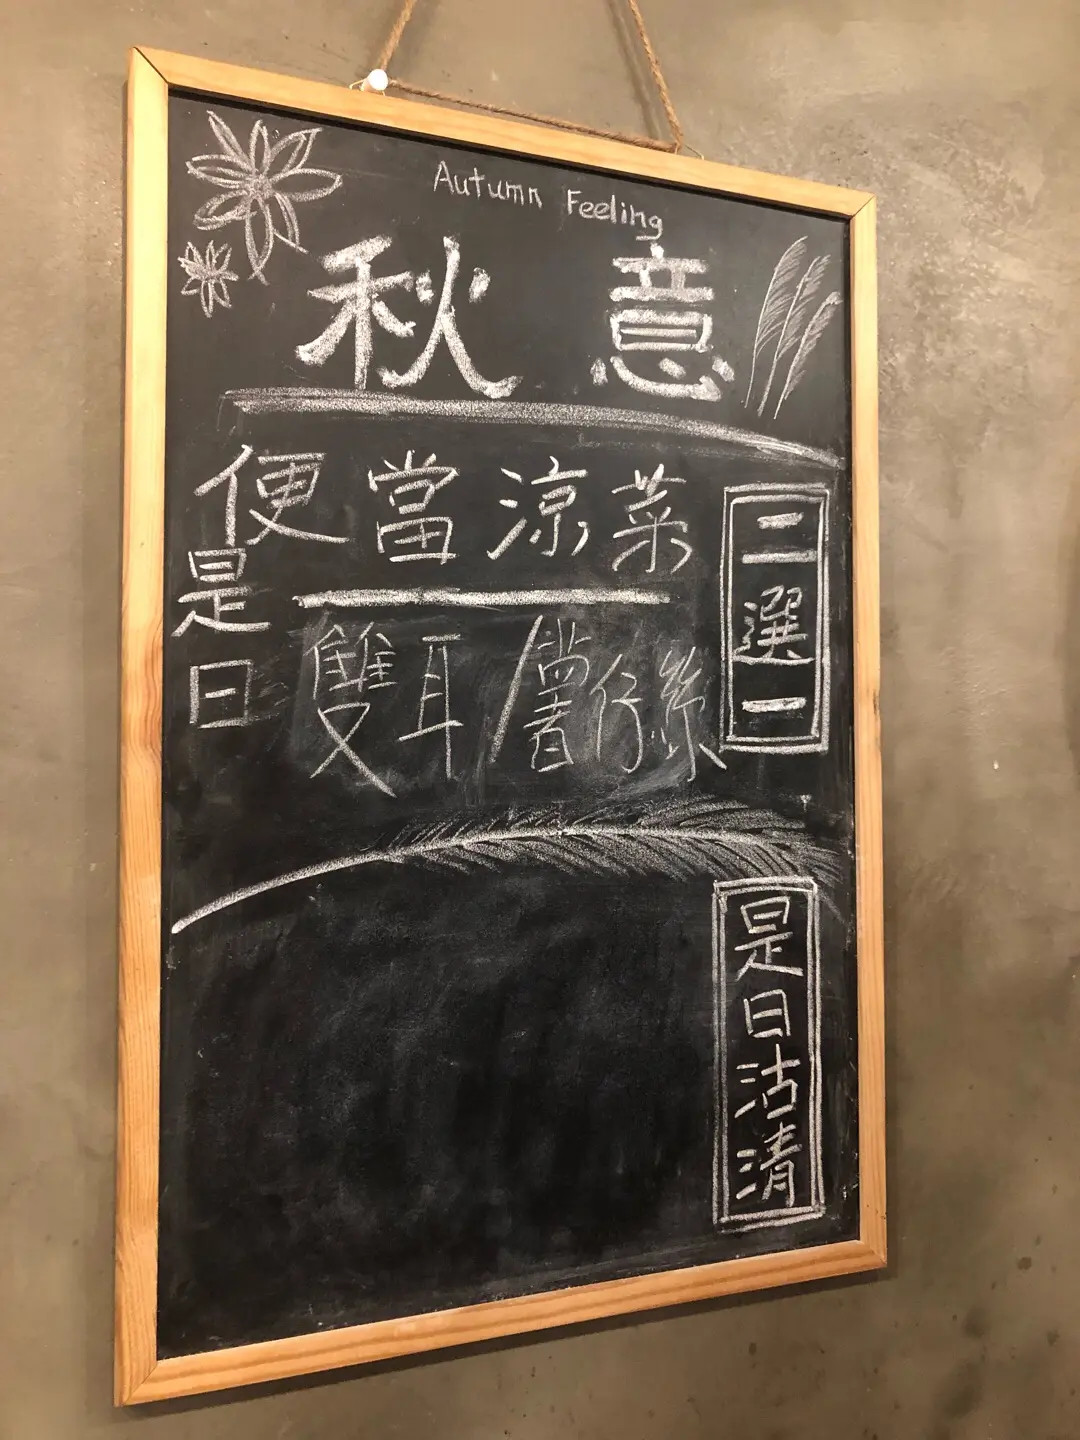 Autumn Feeling
秋意
便當涼菜
二選一
是日
雙耳/薯仔絲
是日沽清